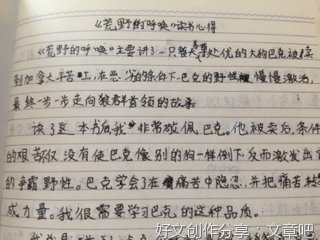 《荒野的呼唤》读书心得
《荒野的呼唤》主要讲了一只养尊处优的大狗巴克被卖
到加拿大干苦工,在恶劣的条件下,巴克的野性慢慢激活,
最终一步一步走向狼群首领的故事
读了这本书后我非常敬佩巴克。他被卖后,条件
的艰苦仅没有使巴克像别的狗一样倒下,反而激发出
的争霸野性。巴克学会了在痛苦中隐忍,并把痛苦转
成力量。我很需要学习巴克的这种品质。
好文创作分享:文章吧